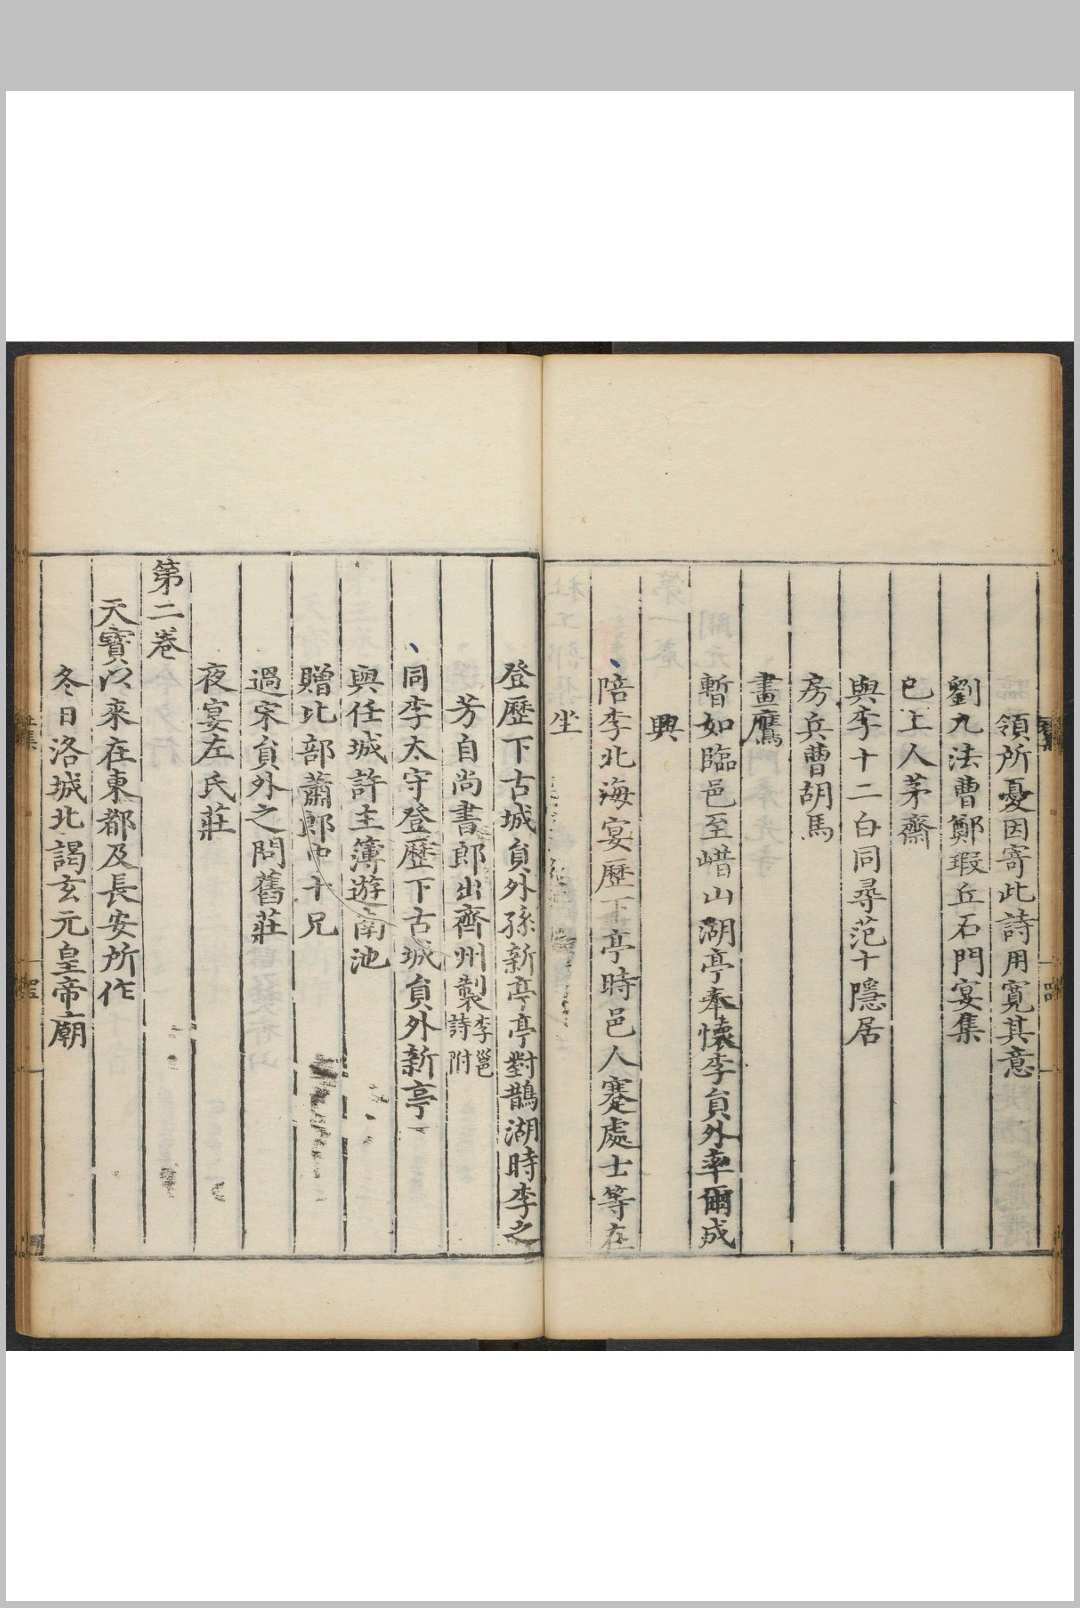 領所憂因寄此詩用寬其意
劉九法曹鄭瑕丘石門宴集
巳上人茅齋
與李十二白同尋范十隱居
房兵曹胡馬
畫鷹
暫如臨邑至㟙山湖亭奉懐李貟外率爾成
興
陪李北海宴歷下亭時邑人蹇處士等在
坐
登歷下古城貟外孫新亭亭對鵲湖時李之
芳自尚書郎出齊州製李邕詩附
同李太守登歷下古城貟外新亭
與任城許主簿遊南池
贈比部蕭郎中十兄
過宋貟外之問舊莊
夜宴左氏莊
第二巻
天寶以来在東都及長安所作
冬日洛城北謁玄元皇帝廟